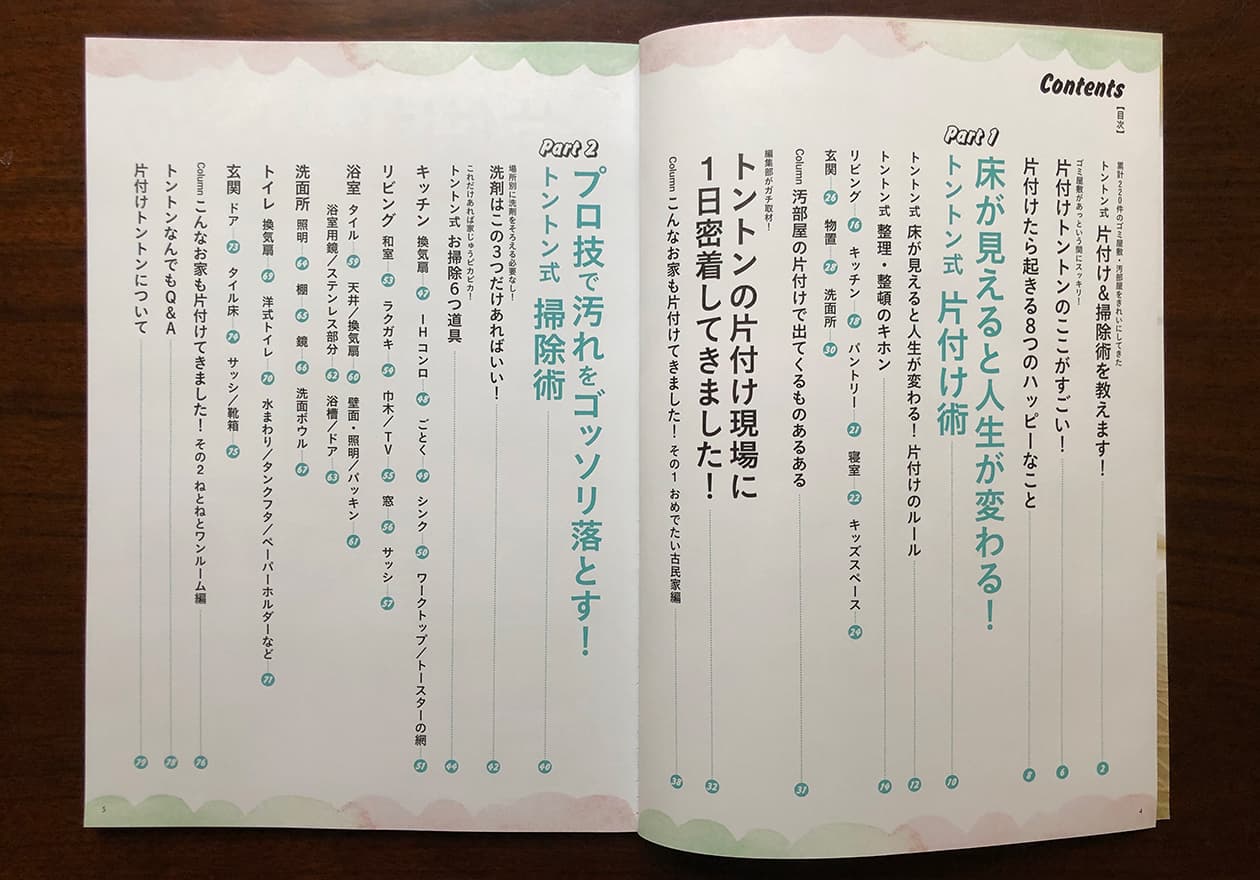 Contents
【目次】
累計220件のゴミ屋敷・汚部屋をきれいにしてきた
トントン式 片付け&掃除術を教えます! 2
ゴミ屋敷があっという間にスッキリ!
片付けトントンのここがすごい! 6
片付けたら起きる8つのハッピーなこと 8
Part 1
床が見えると人生が変わる!
トントン式 片付け術 10
トントン式 床が見えると人生が変わる! 片付けのルール 12
トントン式 整理・整頓のキホン 14
リビング 16 キッチン 18 パントリー 21 寝室 22 キッズスペース 24
玄関 26 物置 28 洗面所 30
Column 汚部屋の片付けで出てくるものあるある 31
編集部がガチ取材!
トントンの片付け現場に
1日密着してきました! 32
Column こんなお家も片付けてきました! その1 おめでたい古民家編 38
4
Part 2
プロ技で汚れをゴッソリ落とす!
トントン式 掃除術 40
場所別に洗剤をそろえる必要なし!
洗剤はこの3つだけあればいい! 42
これだけあれば家じゅうピカピカ!
トントン式 お掃除6つ道具 44
キッチン 換気扇 47 IHコンロ 48 ごとく 49 シンク 50 ワークトップ/トースターの網 51
リビング 和室 53 ラクガキ 54 巾木/TV 55 窓 56 サッシ 57
浴室 タイル 59 天井/換気扇 60 壁面・照明/パッキン 61
浴室用鏡/ステンレス部分 62 浴槽/ドア 63
洗面所 照明 64 棚 65 鏡 66 洗面ボウル 67
トイレ 換気扇 69 洋式トイレ 70 水まわり/タンクフタ/ペーパーホルダーなど 71
玄関 ドア 73 タイル床 74 サッシ/靴箱 75
Column こんなお家も片付けてきました! その2 ねとねとワンルーム編 76
トントンなんでもQ&A 78
片付けトントンについて 79
5